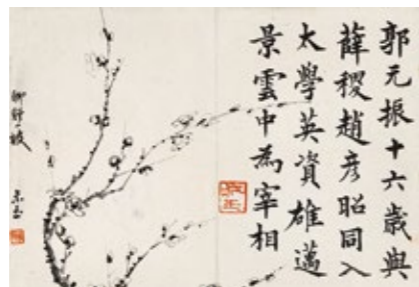 郭元振十六歲與
薛稷趙彥昭同入
太學英資雄邁
景雲中為宰相